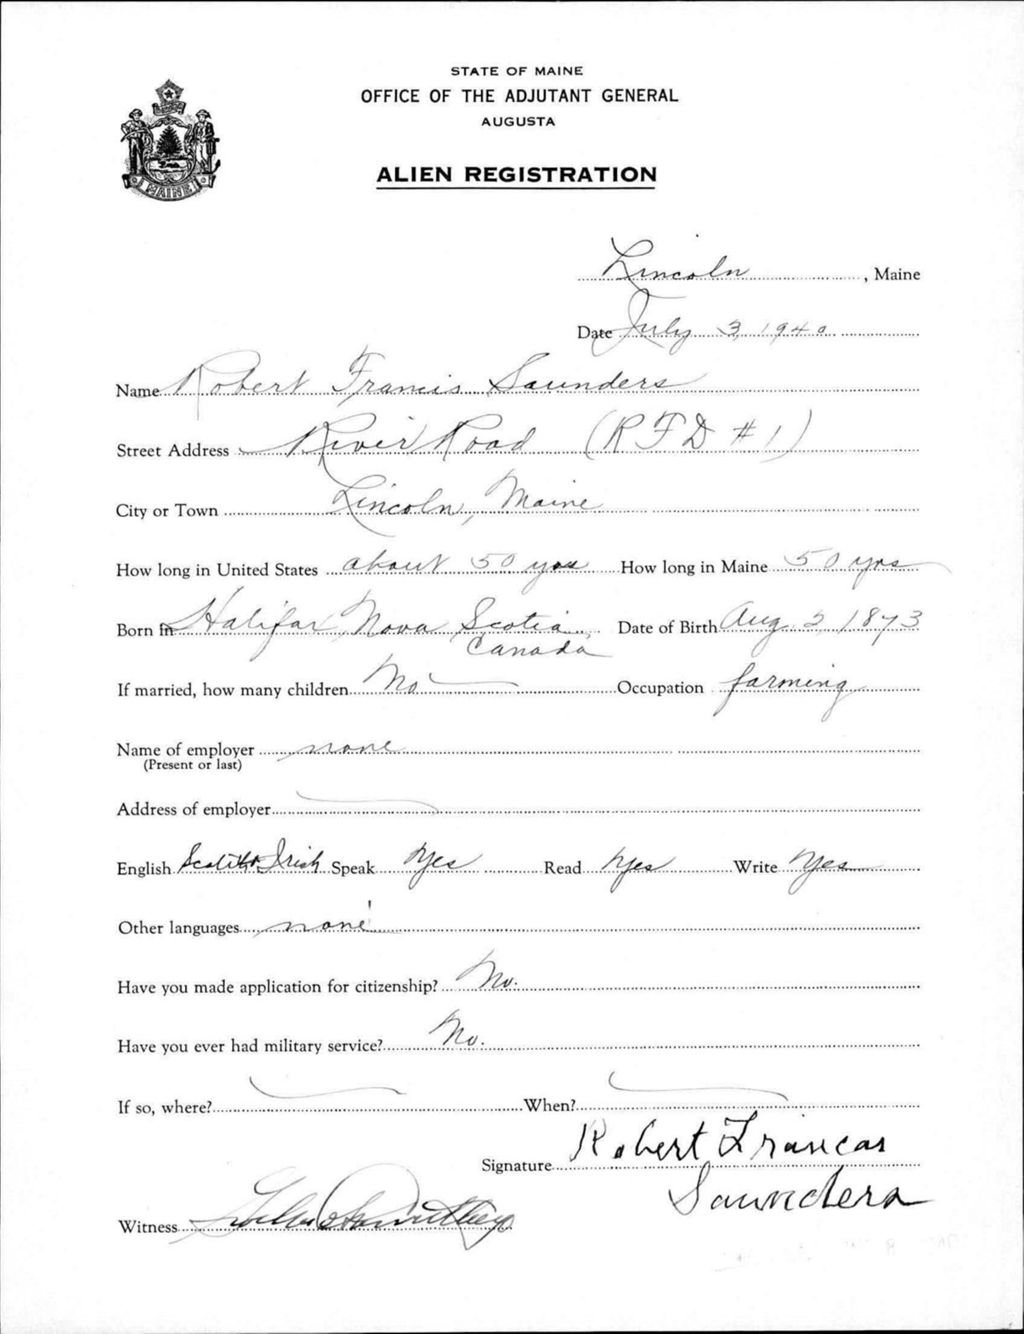 STATE OF MAINE
OFFICE OF THE ADJUTANT GENERAL
AUGUSTA
ALIEN REGISTRATION
MAINE
Lincoln, Maine
Date July 3, 1940
Name Robert Francis Saunders
Street Address River Road (RFD #1)
City or Town Lincoln, Maine
How long in United States about 50 yrs How long in Maine 50 yrs
Born in Halifax, Nova Scotia, Date of Birth Aug 2, 1873
Canada
If married, how many children No Occupation farming
Name of employer none
(Present or last)
Address of employer
English Irish Speak Yes Read Yes Write Yes
Other languages none
Have you made application for citizenship? No.
Have you ever had military service? No.
If so, where? When?
Signature Robert Francas
Saunders
Witness